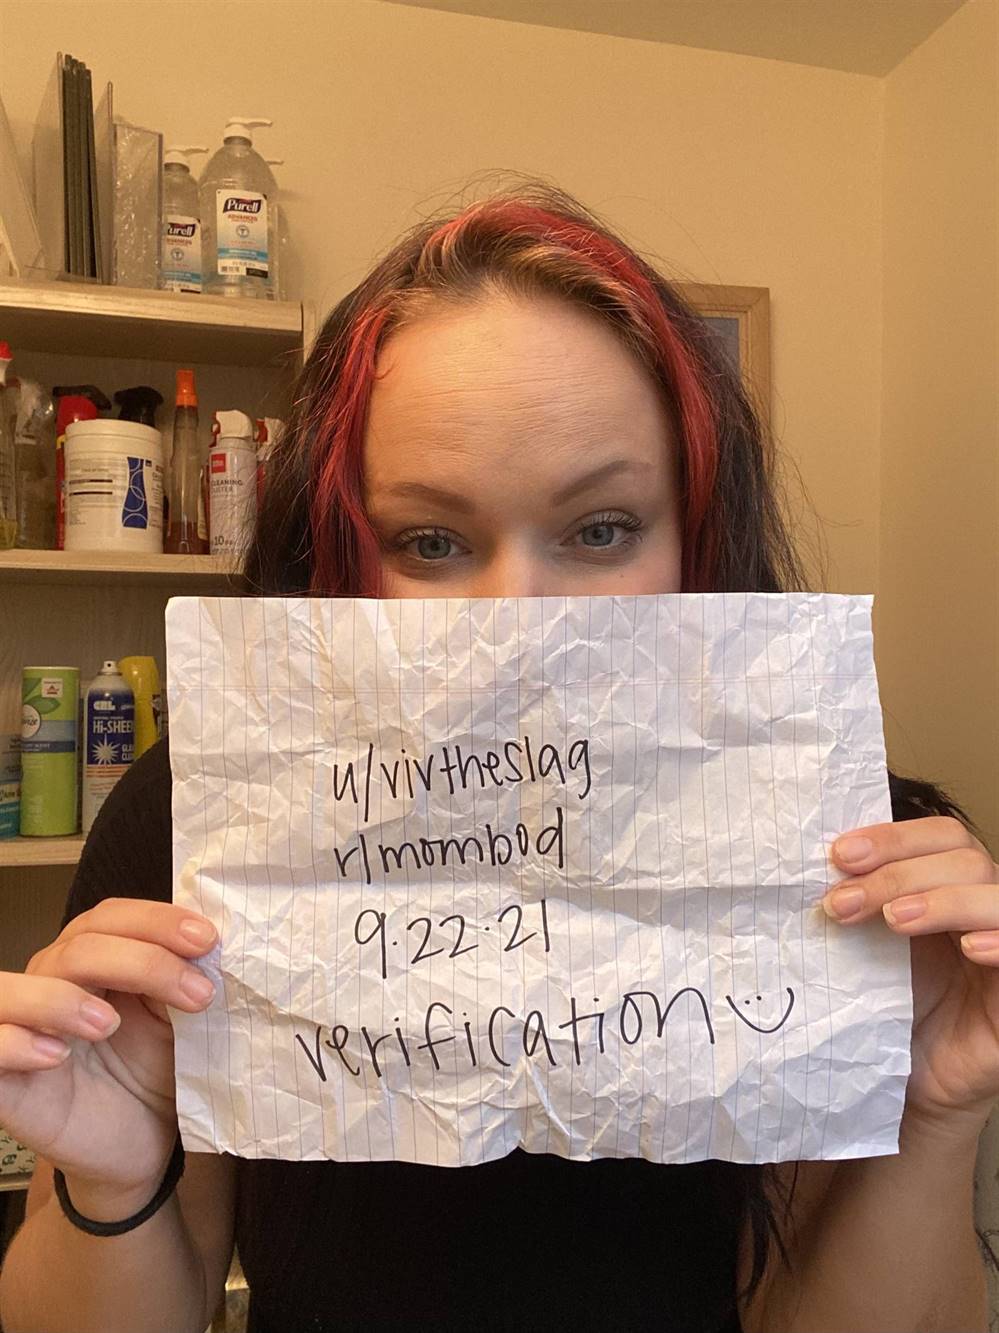 Purell
ADVANCED
Purell
ADVANCED
CLEANING
DUSTER
10
CRL
Hi-SHEEN
u/vivtheslag
r/mombod
9.22.21
verification